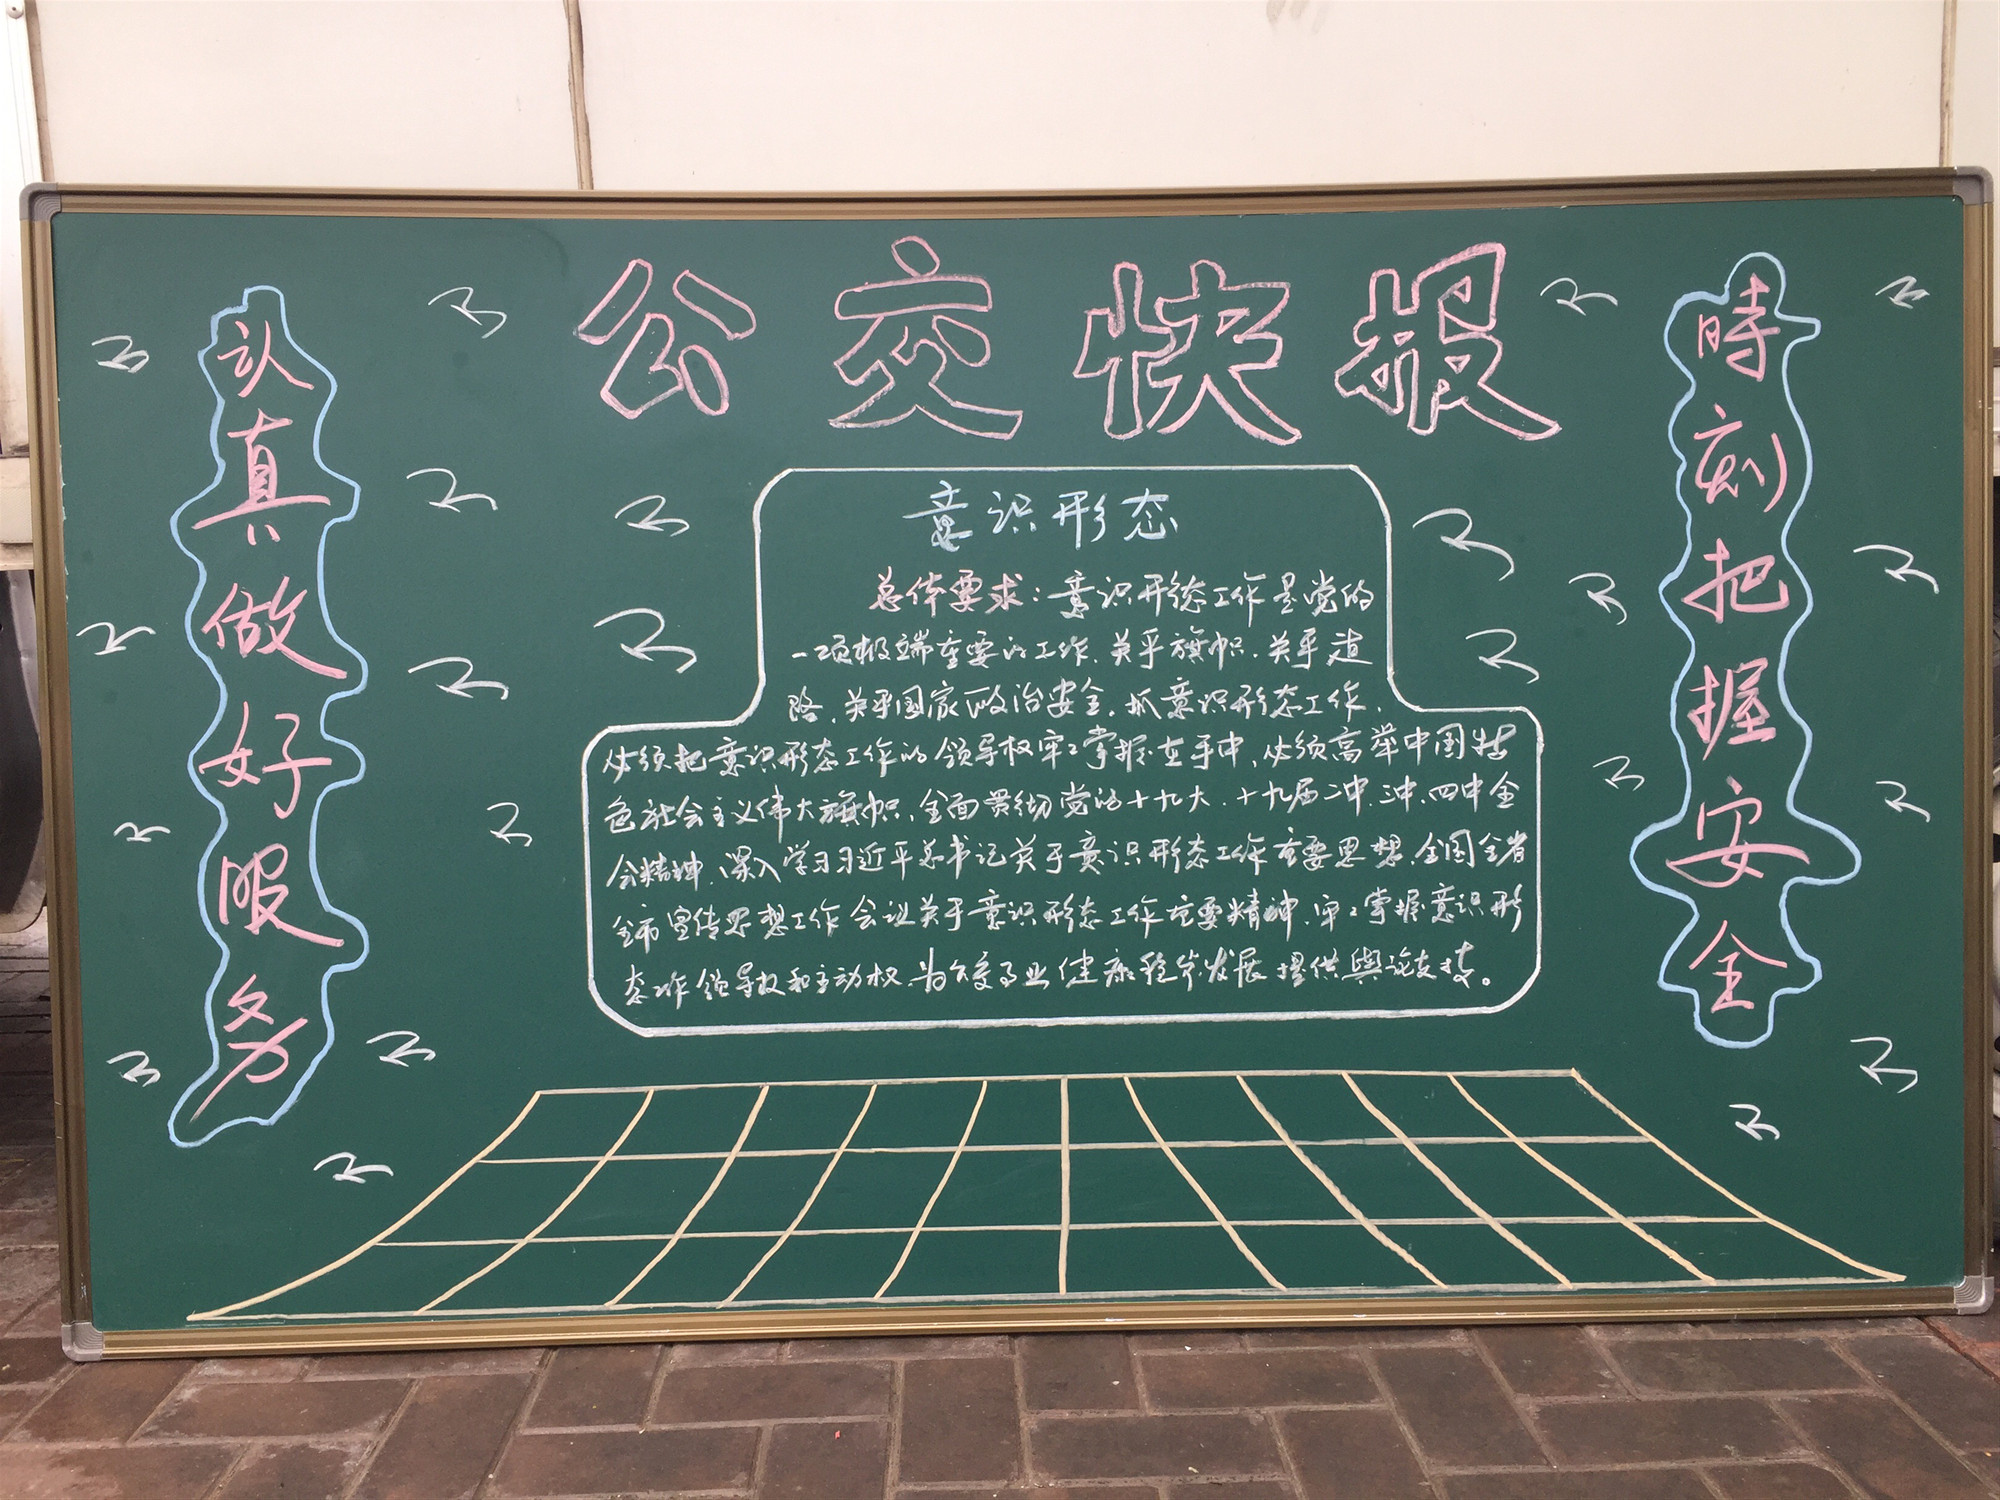 公交快报
认真做好服务
意识形态
总体要求：意识形态工作是党的
一项极端重要的工作、关乎旗帜、关乎道
路、关乎国家政治安全，抓意识形态工作，
必须把意识形态工作的领导权牢牢掌握在手中，必须高举中国特
色社会主义伟大旗帜，全面贯彻党的十九大、十九届二中、三中、四中全
会精神，深入学习习近平总书记关于意识形态工作重要思想，全国全省
全市宣传思想工作会议关于意识形态工作重要精神，牢牢掌握意识形
态工作领导权和主动权，为公交事业健康稳步发展提供舆论支持。
時刻把握安全